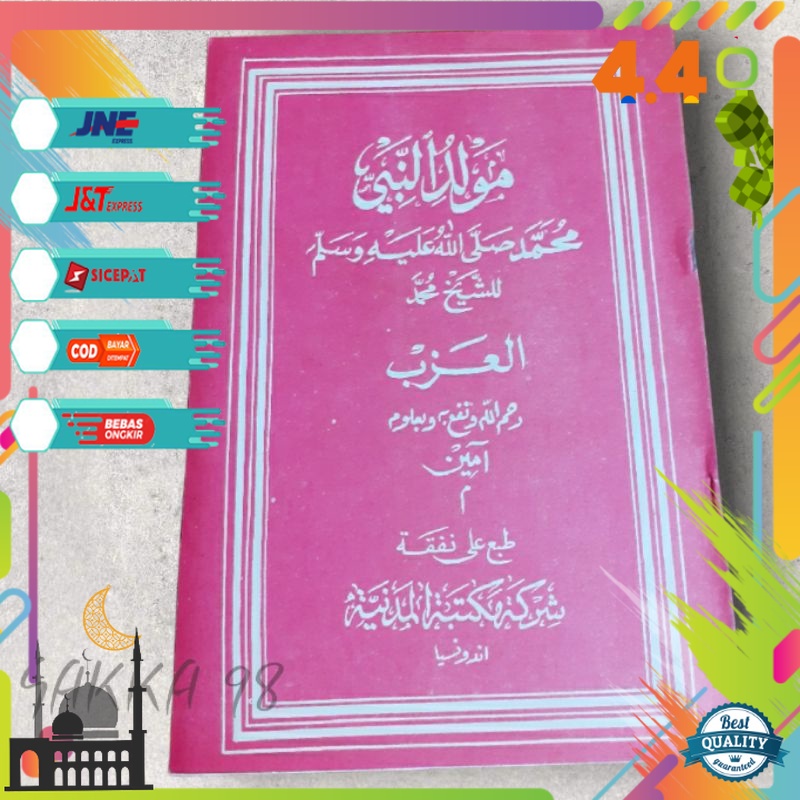 4.4
JNE
EXPRESS
J&T EXPRESS
SICEPAT
COD BAYAR DITEMPAT
BEBAS ONGKIR
مَوْلِدُ النَّبِيّ
مُحَمَّد صَلَّى اللهُ عَلَيْهِ وَسَلَّمَ
لِلشَّيْخ مُحَمَّد
العَزَبْ
رحم الله ونفع به وبعلوم
آمين
م
طبع على نفقة
شركة مكتبة المدنية
اندونسيا
SAKKA 98
Best
QUALITY
guaranteed